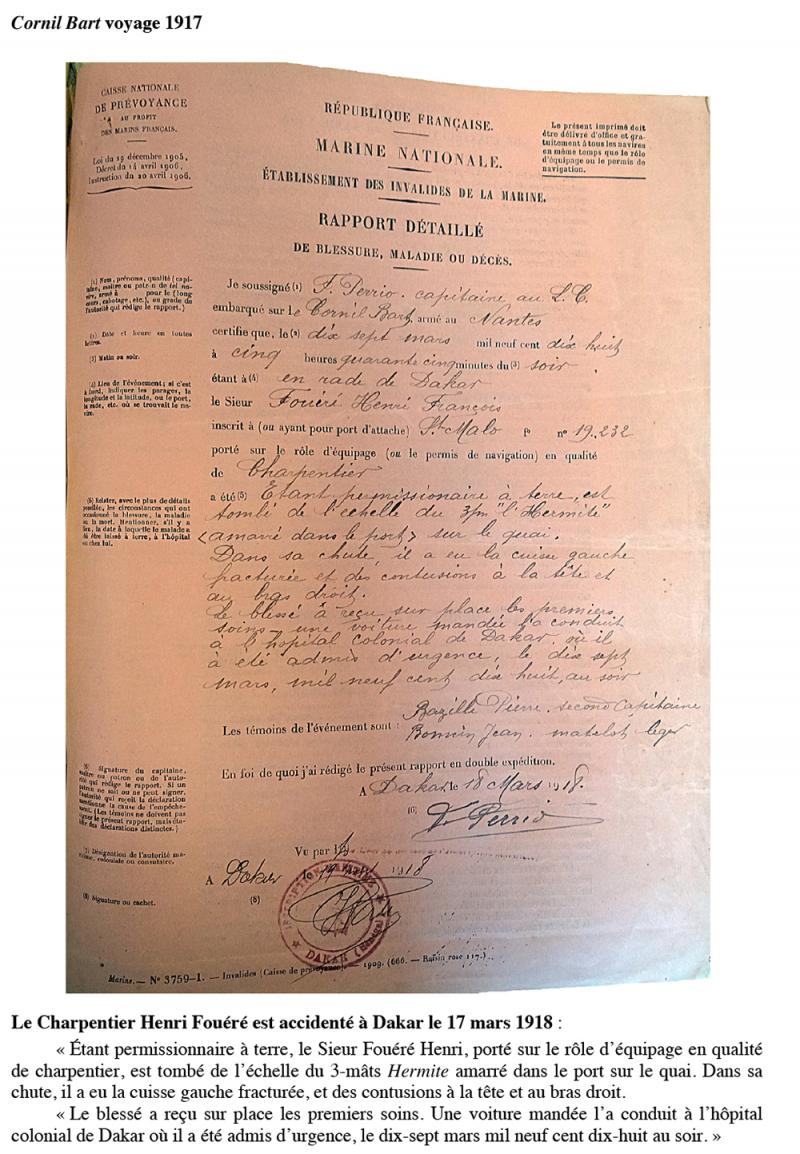 Cornil Bart voyage 1917
CAISSE NATIONALE
DE PRÉVOYANCE
AU PROFIT
DES MARINS FRANÇAIS.
Loi du 29 décembre 1905,
Décret du 14 avril 1906,
Instruction du 20 avril 1906.
RÉPUBLIQUE FRANÇAISE.
MARINE NATIONALE.
ÉTABLISSEMENT DES INVALIDES DE LA MARINE.
RAPPORT DÉTAILLÉ
DE BLESSURE, MALADIE OU DÉCÈS.
Le présent imprimé doit
être délivré d'office et gra-
tuitement à tous les navires
en même temps que le rôle
d'équipage ou le permis de
navigation.
(1) Nom, prénoms, qualité (capi-
taine, maître ou patron de tel na-
vire, armé à pour le (long
cours, cabotage, etc.), ou grade de
l'autorité qui rédige le rapport.)
(2) Date et heure en toutes
lettres.
(3) Matin ou soir.
(4) Lieu de l'événement; si c'est
à bord, indiquer les parages, la
longitude et la latitude, ou le port,
la rade, etc. où se trouvait le na-
vire.
(5) Relater, avec le plus de détails
possible, les circonstances qui ont
occasionné la blessure, la maladie
ou la mort. Mentionner, s'il y a
lieu, la date à laquelle le malade a
dû être laissé à terre, à l'hôpital
ou chez lui.
Je soussigné (1) F. Perrio. capitaine au L.C.
embarqué sur le Cornil Bart, armé au Nantes
certifie que, le (2) dix sept mars mil neuf cent dix huit
à cinq heures quarante cinq minutes du (3) soir
étant à (4) en rade de Dakar
le Sieur Fouéré Henri François
inscrit à (ou ayant pour port d'attache) St Malo fo n° 19.232
porté sur le rôle d'équipage (ou le permis de navigation) en qualité
de Charpentier
a été (5) Etant permissionaire à terre, est
tombé de l'échelle du 3/m "l'Hermite"
(amarré dans le port) sur le quai.
Dans sa chute, il a eu la cuisse gauche
fracturée et des contusions à la tête et
au bras droit.
Le blessé à reçu sur place les premiers
soins - une voiture mandée l'a conduit
à l'hopital colonial de Dakar, où il
à été admis d'urgence, le dix sept
mars, mil neuf cent dix huit, au soir
Les témoins de l'événement sont : Bazille Pierre. second Capitaine
Bonnin Jean. matelot léger
En foi de quoi j'ai rédigé le présent rapport en double expédition.
A Dakar, le 18 Mars 1918.
(6) Perrio
(6) Signature du capitaine,
maître ou patron ou de l'auto-
rité qui rédige le rapport. Si un
patron ne sait ou ne peut signer,
l'autorité qui reçoit la déclaration
mentionne la cause de l'empêche-
ment. (Les témoins ne doivent pas
signer le présent rapport, mais éta-
blir des déclarations distinctes.)
(7) Désignation de l'autorité ma-
ritime, coloniale ou consulaire.
(8) Signature ou cachet.
Vu par
A Dakar le 1918
(8)
INSCRIPTION MARITIME
DAKAR (Sénégal)
Marine. — N° 3759-1. — Invalides (Caisse de prévoyance). — 1909. (666. — Raisin rose 117.)
Le Charpentier Henri Fouéré est accidenté à Dakar le 17 mars 1918 :
« Étant permissionaire à terre, le Sieur Fouéré Henri, porté sur le rôle d'équipage en qualité
de charpentier, est tombé de l'échelle du 3-mâts Hermite amarré dans le port sur le quai. Dans sa
chute, il a eu la cuisse gauche fracturée, et des contusions à la tête et au bras droit.
« Le blessé a reçu sur place les premiers soins. Une voiture mandée l'a conduit à l'hôpital
colonial de Dakar où il a été admis d'urgence, le dix-sept mars mil neuf cent dix-huit au soir. »